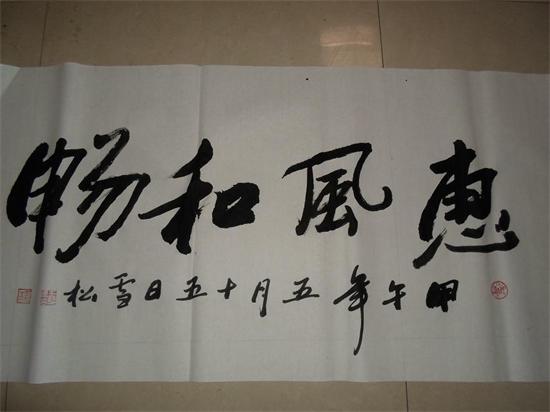 惠風和畅
甲午年五月十五日雪松